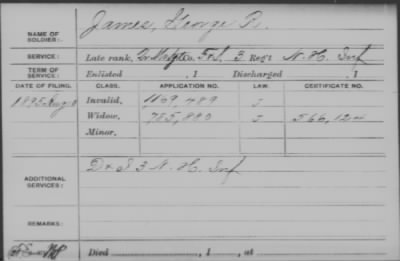 NAME OF SOLDIER: James, George R.
SERVICE: Late rank, Qr. Mast. Co. F & S, 3 Reg't N. H. Inf
TERM OF SERVICE: Enlisted , 1 Discharged , 1
DATE OF FILING. CLASS. APPLICATION NO. LAW. CERTIFICATE NO.
1895 Aug Invalid, 1109,489 J
Widow, 785,890 J 566,124
Minor,
ADDITIONAL SERVICES: 3 N. H. Inf
REMARKS:
Died , 1 , at